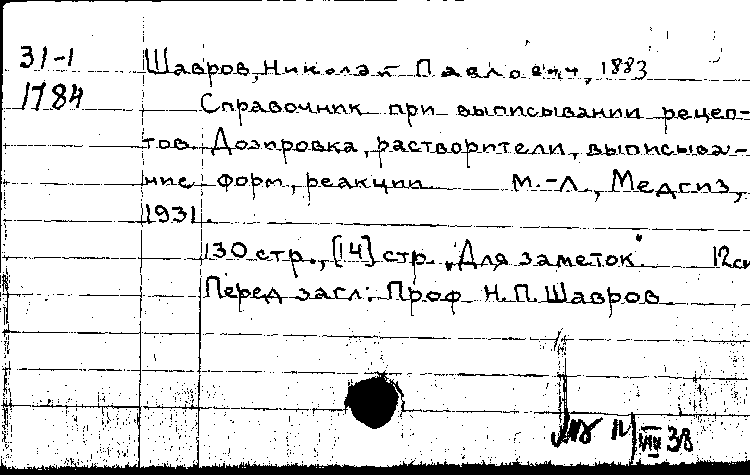 31-1 Шавров, Николай Павлович, 1883
1784 Справочник при выписывании рецеп-
тов. Дозировка, растворители, выписыва-
ние форм, реакции М.-Л., Медгиз,
1931.
130 стр., [14] стр. "Для заметок" 12см
Перед загл: Проф Н.П. Шавров.
VIII 38